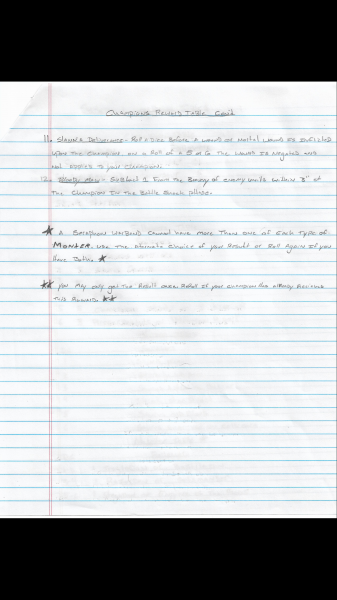 Champions Reward Table Cont.
11. Slaanesh Deliverance - Roll a Dice Before A wound or mortal wound is inflicted
upon the champion on a Roll of a 5 or 6 The wound is Negated and
not applied to your champion.
12. - Subtract 1 From the Bravery of enemy units within 3" of
The Champion In The Battle Shock phase.
★ A Warband Cannot have more Than one of Each Type of
MONSTER. use the Alternate Choice of your Result or Roll Again if you
Have Both. ★
★★ you May only get the Result once. Reroll if your champion has already Received
This Reward. ★★